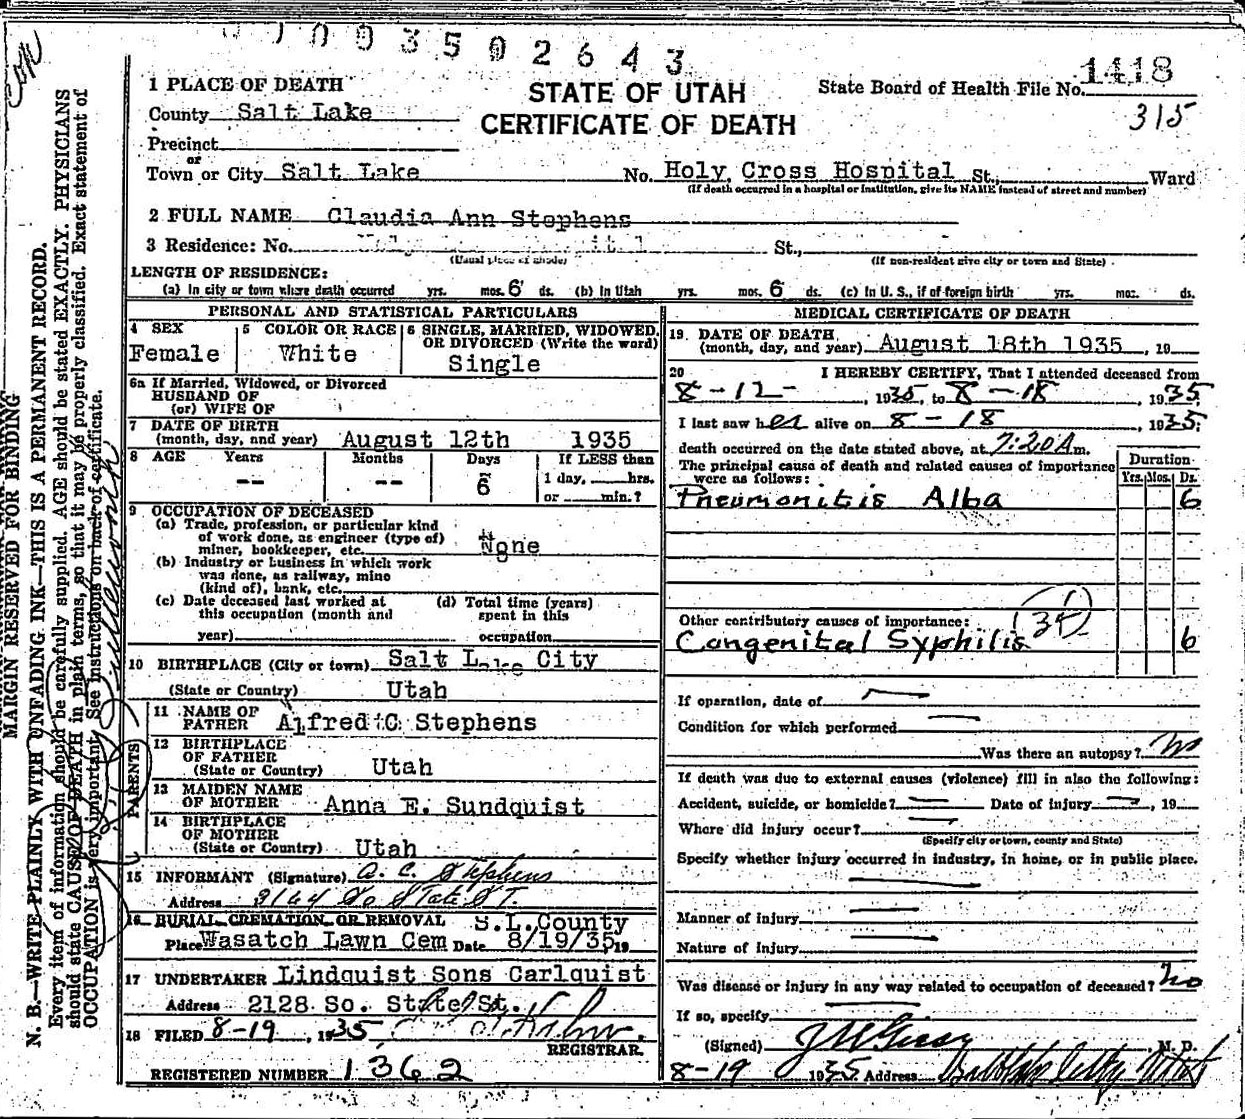 0003502643
1 PLACE OF DEATH
STATE OF UTAH
CERTIFICATE OF DEATH
State Board of Health File No. 1418
315
County Salt Lake
Precinct
or
Town or City Salt Lake No. Holy Cross Hospital St., Ward
(If death occurred in a hospital or institution, give its NAME instead of street and number)
2 FULL NAME Claudia Ann Stephens
3 Residence: No. St.,
(Usual place of abode) (If non-resident give city or town and State)
LENGTH OF RESIDENCE:
(a) In city or town where death occurred yrs. mos. 6 ds. (b) In Utah yrs. mos. 6 ds. (c) In U. S., if of foreign birth yrs. mos. ds.
PERSONAL AND STATISTICAL PARTICULARS
4 SEX Female
5 COLOR OR RACE White
6 SINGLE, MARRIED, WIDOWED, OR DIVORCED (Write the word) Single
6a If Married, Widowed, or Divorced
HUSBAND OF
(or) WIFE OF
7 DATE OF BIRTH
(month, day, and year) August 12th 1935
8 AGE Years -- Months -- Days 6 If LESS than
1 day, hrs.
or min.?
9 OCCUPATION OF DECEASED
(a) Trade, profession, or particular kind
of work done, as engineer (type of)
miner, bookkeeper, etc. None
(b) Industry or business in which work
was done, as railway, mine
(kind of), bank, etc.
(c) Date deceased last worked at
this occupation (month and
year)
(d) Total time (years)
spent in this
occupation
10 BIRTHPLACE (City or town) Salt Lake City
(State or Country) Utah
PARENTS
11 NAME OF
FATHER Alfred C Stephens
12 BIRTHPLACE
OF FATHER
(State or Country) Utah
13 MAIDEN NAME
OF MOTHER Anna E. Sundquist
14 BIRTHPLACE
OF MOTHER
(State or Country) Utah
15 INFORMANT (Signature) A. C. Stephens
Address 3164 So State St.
16 BURIAL, CREMATION, OR REMOVAL S.L.County
Place Wasatch Lawn Cem Date 8/19/35 19
17 UNDERTAKER Lindquist Sons Carlquist
Address 2128 So. State St.
18 FILED 8-19, 1935
REGISTRAR.
REGISTERED NUMBER 1362
MEDICAL CERTIFICATE OF DEATH
19 DATE OF DEATH
(month, day, and year) August 18th 1935, 19
20 I HEREBY CERTIFY, That I attended deceased from
8-12-, 1935, to 8-18, 1935.
I last saw her alive on 8-18, 1935;
death occurred on the date stated above, at 7:20 A m.
The principal cause of death and related causes of importance
were as follows:
Duration
Yrs. Mos. Ds.
Pneumonitis Alba 6
Other contributory causes of importance:
Congenital Syphilis 6
If operation, date of —
Condition for which performed —
Was there an autopsy? No
If death was due to external causes (violence) fill in also the following:
Accident, suicide, or homicide? — Date of injury —, 19
Where did injury occur? —
(Specify city or town, county and State)
Specify whether injury occurred in industry, in home, or in public place.
—
Manner of injury —
Nature of injury —
Was disease or injury in any way related to occupation of deceased? No
If so, specify —
(Signed) , M. D.
8-19 1935 Address
MARGIN RESERVED FOR BINDING
N. B.—WRITE PLAINLY WITH UNFADING INK—THIS IS A PERMANENT RECORD.
Every item of information should be carefully supplied. AGE should be stated EXACTLY. PHYSICIANS
should state CAUSE OF DEATH in plain terms, so that it may be properly classified. Exact statement of
OCCUPATION is very important. See instructions on back of certificate.